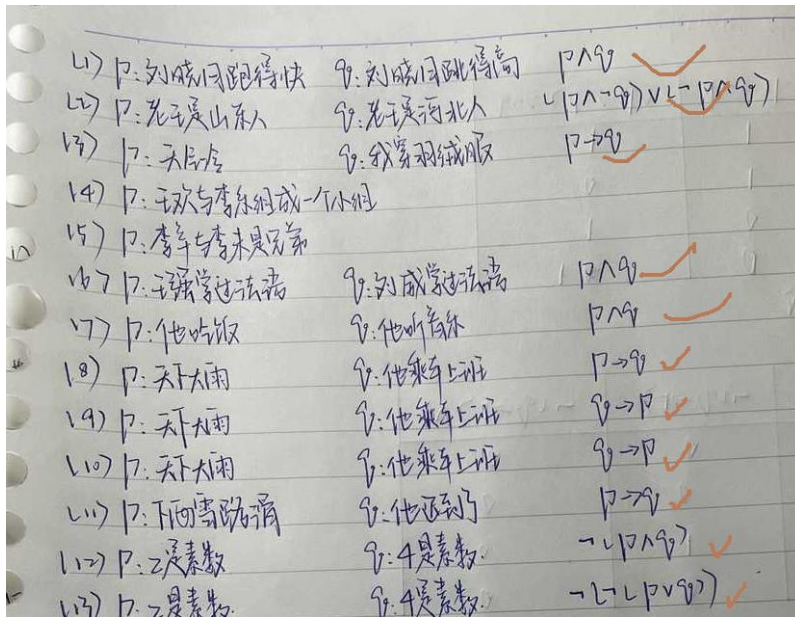 (1) p: 刘晓月跑得快 q: 刘晓月跳得高 p∧q
(2) p: 老王是山东人 q: 老王是河北人 (p∧¬q)∨(¬p∧q)
(3) p: 天气冷 q: 我穿羽绒服 p→q
(4) p: 王欢与李乐组成一个小组
(5) p: 李辛与李末是兄弟
(6) p: 王强学过法语 q: 刘威学过法语 p∧q
(7) p: 他吃饭 q: 他听音乐 p∧q
(8) p: 天下大雨 q: 他乘车上班 p→q
(9) p: 天下大雨 q: 他乘车上班 q→p
(10) p: 天下大雨 q: 他乘车上班 q→p
(11) p: 下雪路滑 q: 他迟到了 p→q
(12) p: 2是素数 q: 4是素数. ¬(p∧q)
(13) p: 2是素数. q: 4是素数. ¬(¬(p∨q))